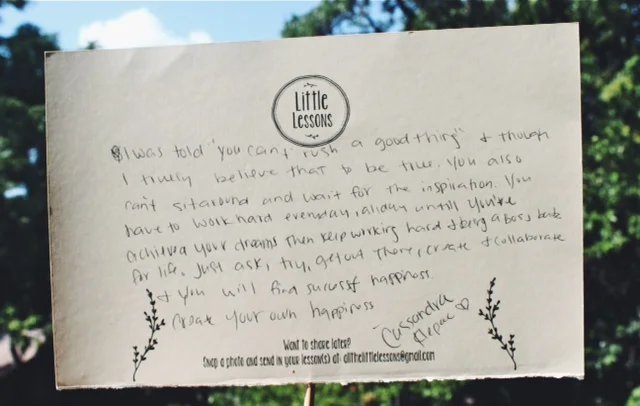 Little
Lessons
I was told "you can't rush a good thing" & though
I truely believe that to be true. You also
can't sit around and wait for the inspiration. You
have to work hard everyday, allday untill you're
achieved your dreams then keep working hard & being a boss babe
for life. Just ask, try, get out there, create & collaborate
& you will find success & happiness.
Create your own happiness
-Cassandra
Want to share later?
Snap a photo and send in your lesson(s) at: allthelittlelessons@gmail.com